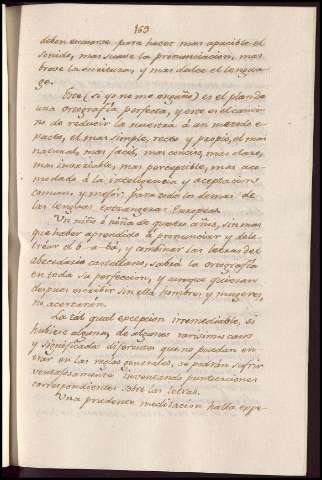 163
deben usarse para hacer mas apacible el
sonido, mas suave la pronunciacion, mas
breve la escritura, y mas dulce el lengua-
ge.
Este (si yo no me engaño) es el plan de
una ortografía perfecta, y este es el cami-
no de reducir la nuestra á un metodo e-
xacto, el mas simple, recto y propio, el mas
natural, mas facil, mas conciso, mas claro,
mas invariable, mas perceptible, mas aco-
modado á la inteligencia y aceptacion
comun, y mejor para todos los demas de
las lenguas extrangeras Europeas.
Un niño ó niña de quatro años, sin mas
que haber aprendido á pronunciar y dele-
trear el b-a-bá, y combinar las letras del
abecedario castellano, sabrá la ortografía
en toda su perfeccion, y aunque quieran
despues escribir sin ella hombres y mugeres,
no acertarán.
La tal qual excepcion irremediable, si
hubiere alguna, de algunos rarisimos casos
y significados diferentes que no puedan en-
trar en las reglas generales, se podrán suplir
ventajosamente inventando puntuaciones
correspondientes sobre las letras.
Una prudente meditacion hasta expe-